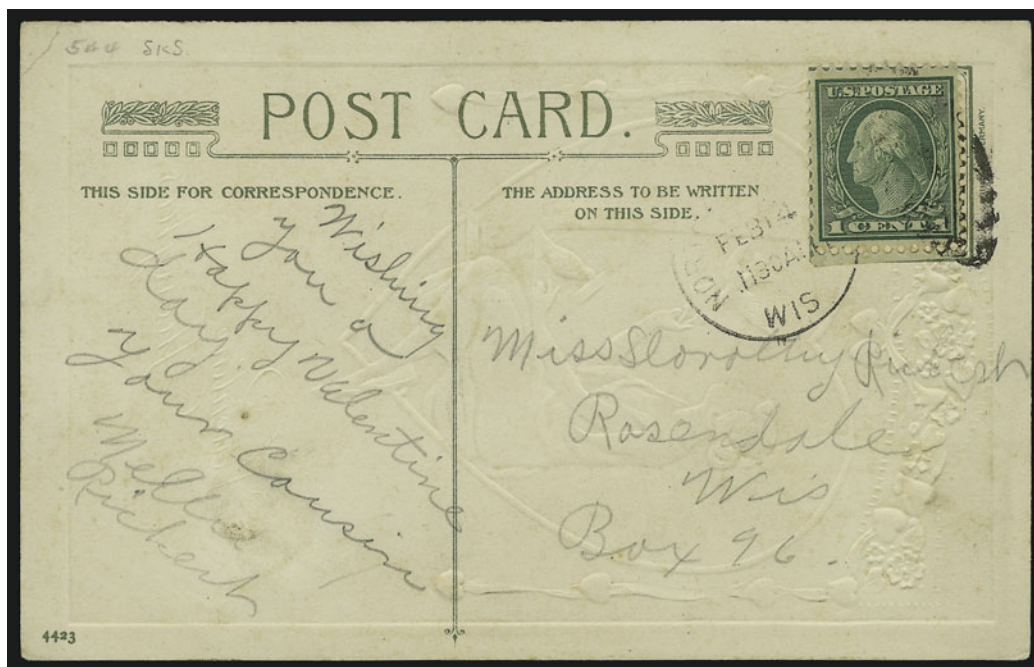 544 SKS
POST CARD.
THIS SIDE FOR CORRESPONDENCE.
THE ADDRESS TO BE WRITTEN
ON THIS SIDE.
U.S. POSTAGE
1 CENT 1
FEB 14
1130AM
NOR
WIS
Wishing
you a
Happy Valentine
day
Your Cousin
Rickert
Miss Dorothy Rickert
Rosendale
Wis
Box 96.
4423